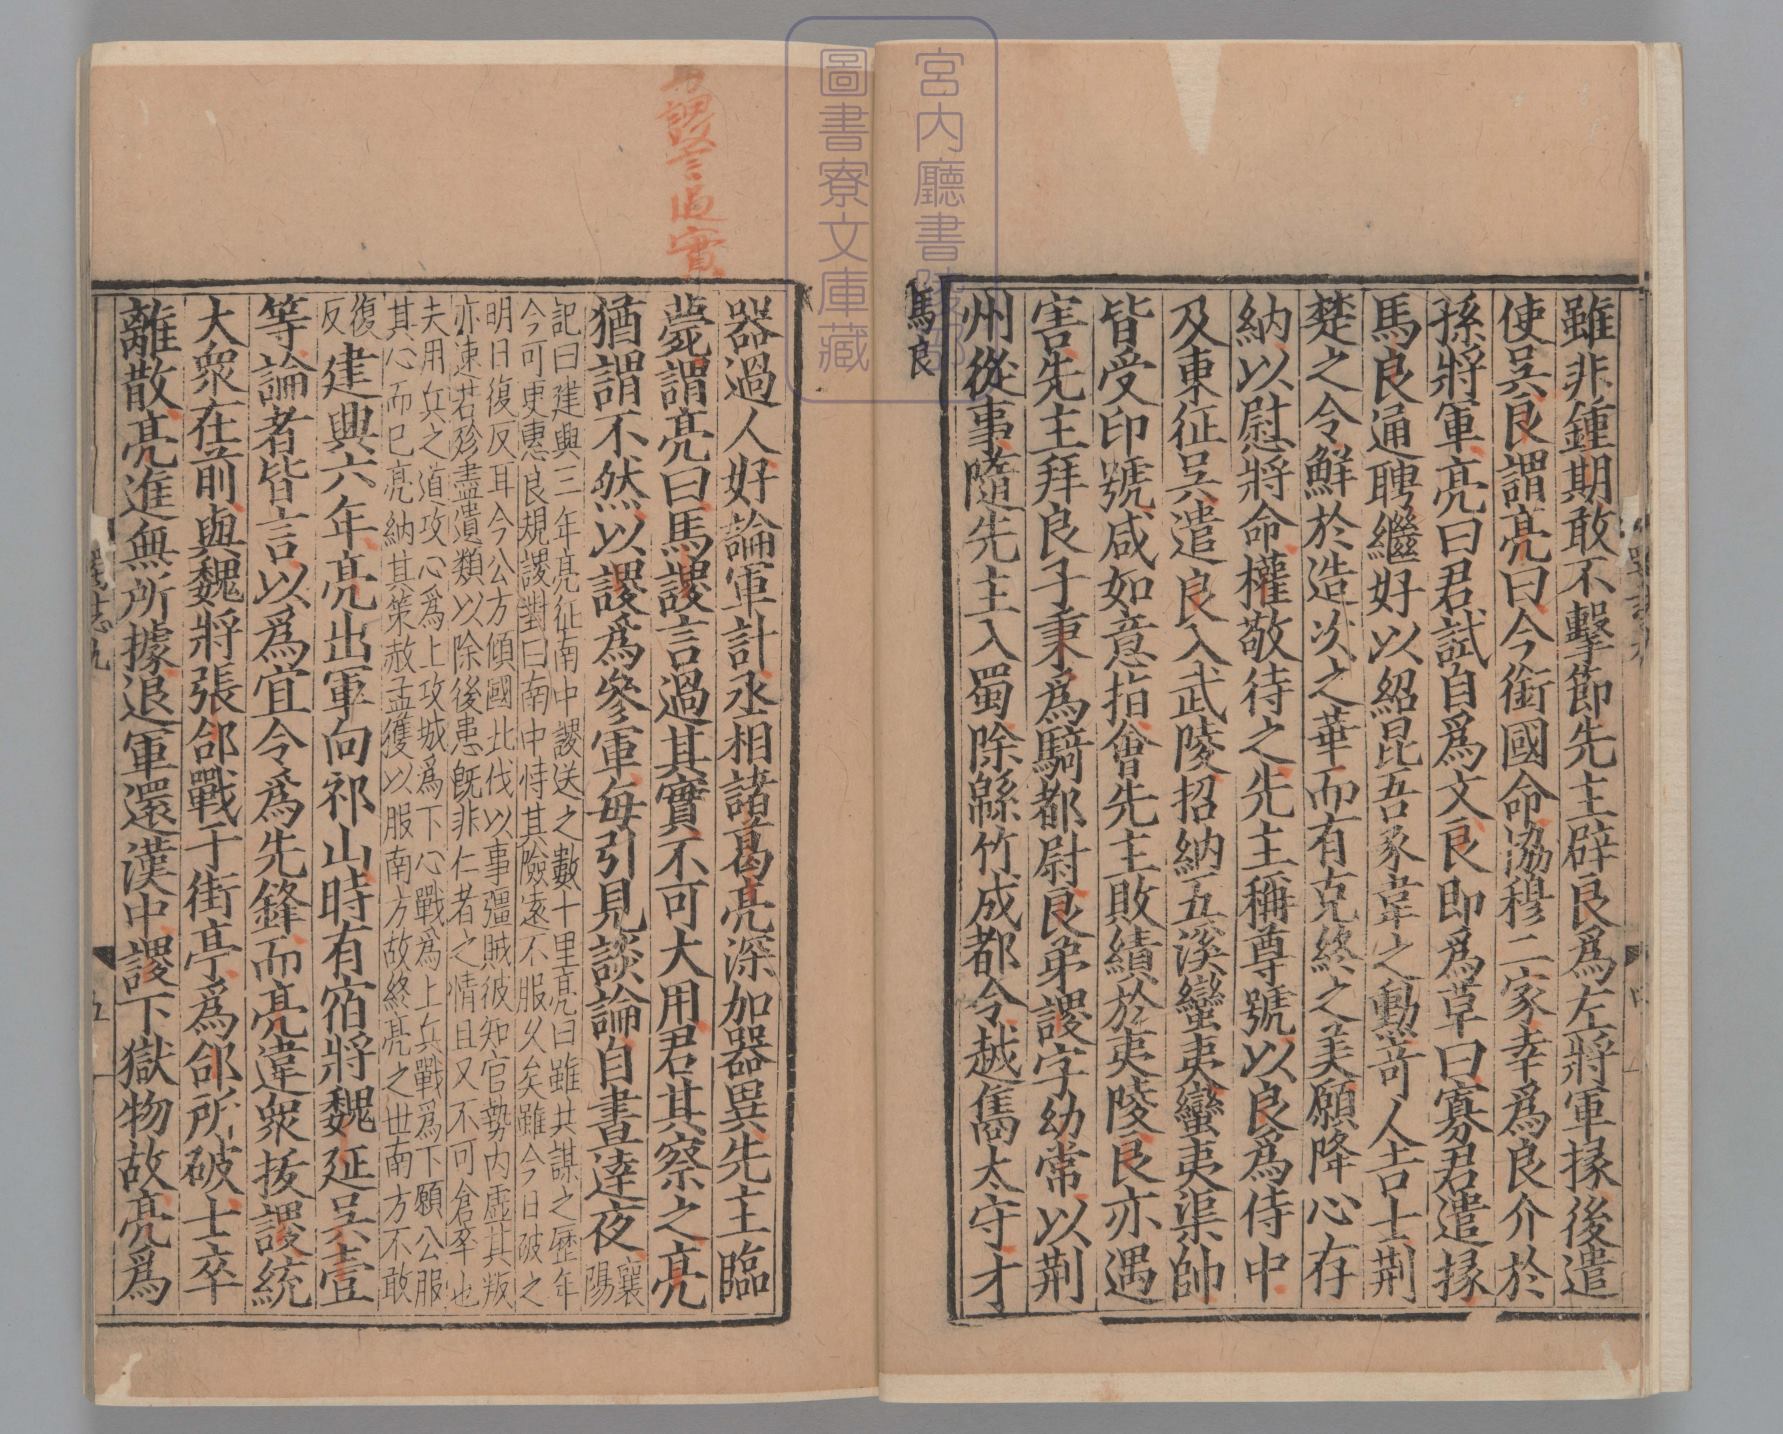 宮内廳書陵部
圖書寮文庫藏
雖非鍾期敢不擊節先主辟良爲左將軍掾後遣
使吳良謂亮曰今銜國命協穆二家幸爲良介於
孫將軍亮曰君試自爲文良即爲草曰寡君遣掾
馬良通聘繼好以紹昆吾豕韋之勳奇人吉士荆
楚之令鮮於造次之華而有克終之美願降心存
納以慰將命權敬待之先主稱尊號以良爲侍中
及東征吳遣良入武陵招納五溪蠻夷蠻夷渠帥
皆受印號咸如意指會先主敗績於夷陵良亦遇
害先主拜良子秉爲騎都尉良弟謖字幼常以荆
州從事隨先主入蜀除緜竹成都令越嶲太守才
馬良
謖言過實
器過人好論軍計丞相諸葛亮深加器異先主臨
薨謂亮曰馬謖言過其實不可大用君其察之亮
猶謂不然以謖爲參軍每引見談論自晝達夜襄陽
記曰建興三年亮征南中謖送之數十里亮曰雖共謀之歷年
今可更惠良規謖對曰南中恃其險遠不服乆矣雖今日破之
明日復反耳今公方傾國北伐以事彊賊彼知官勢内虛其叛
亦速若殄盡遺類以除後患旣非仁者之情且又不可倉卒也
夫用兵之道攻心爲上攻城爲下心戰爲上兵戰爲下願公服
其心而已亮納其策赦孟獲以服南方故終亮之世南方不敢
復反建興六年亮出軍向祁山時有宿將魏延吳壹
等論者皆言以爲宜令爲先鋒而亮違衆拔謖統
大衆在前與魏將張郃戰于街亭爲郃所破士卒
離散亮進無所據退軍還漢中謖下獄物故亮爲
五